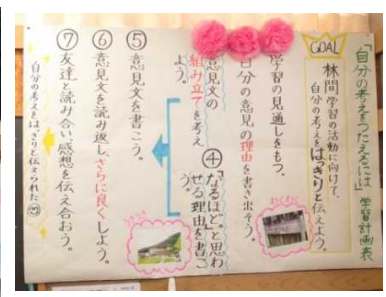 「自分の考えをつたえるには」学習計画表
GOAL
林間学習の活動に向けて、
自分の考えをはっきりと伝えよう。
学習の見通しをもつ。
自分の意見の理由を書き出そう。
意見文の
組み立てを考え
よう。
④
「なるほど。」と思わ
せる理由を書こ
う。
⑤
意見文を書こう。
⑥
意見文を読み返し、さらに良くしよう。
⑦
友達と読み合い、感想を伝え合おう。
自分の考えをはっきりと伝えられた